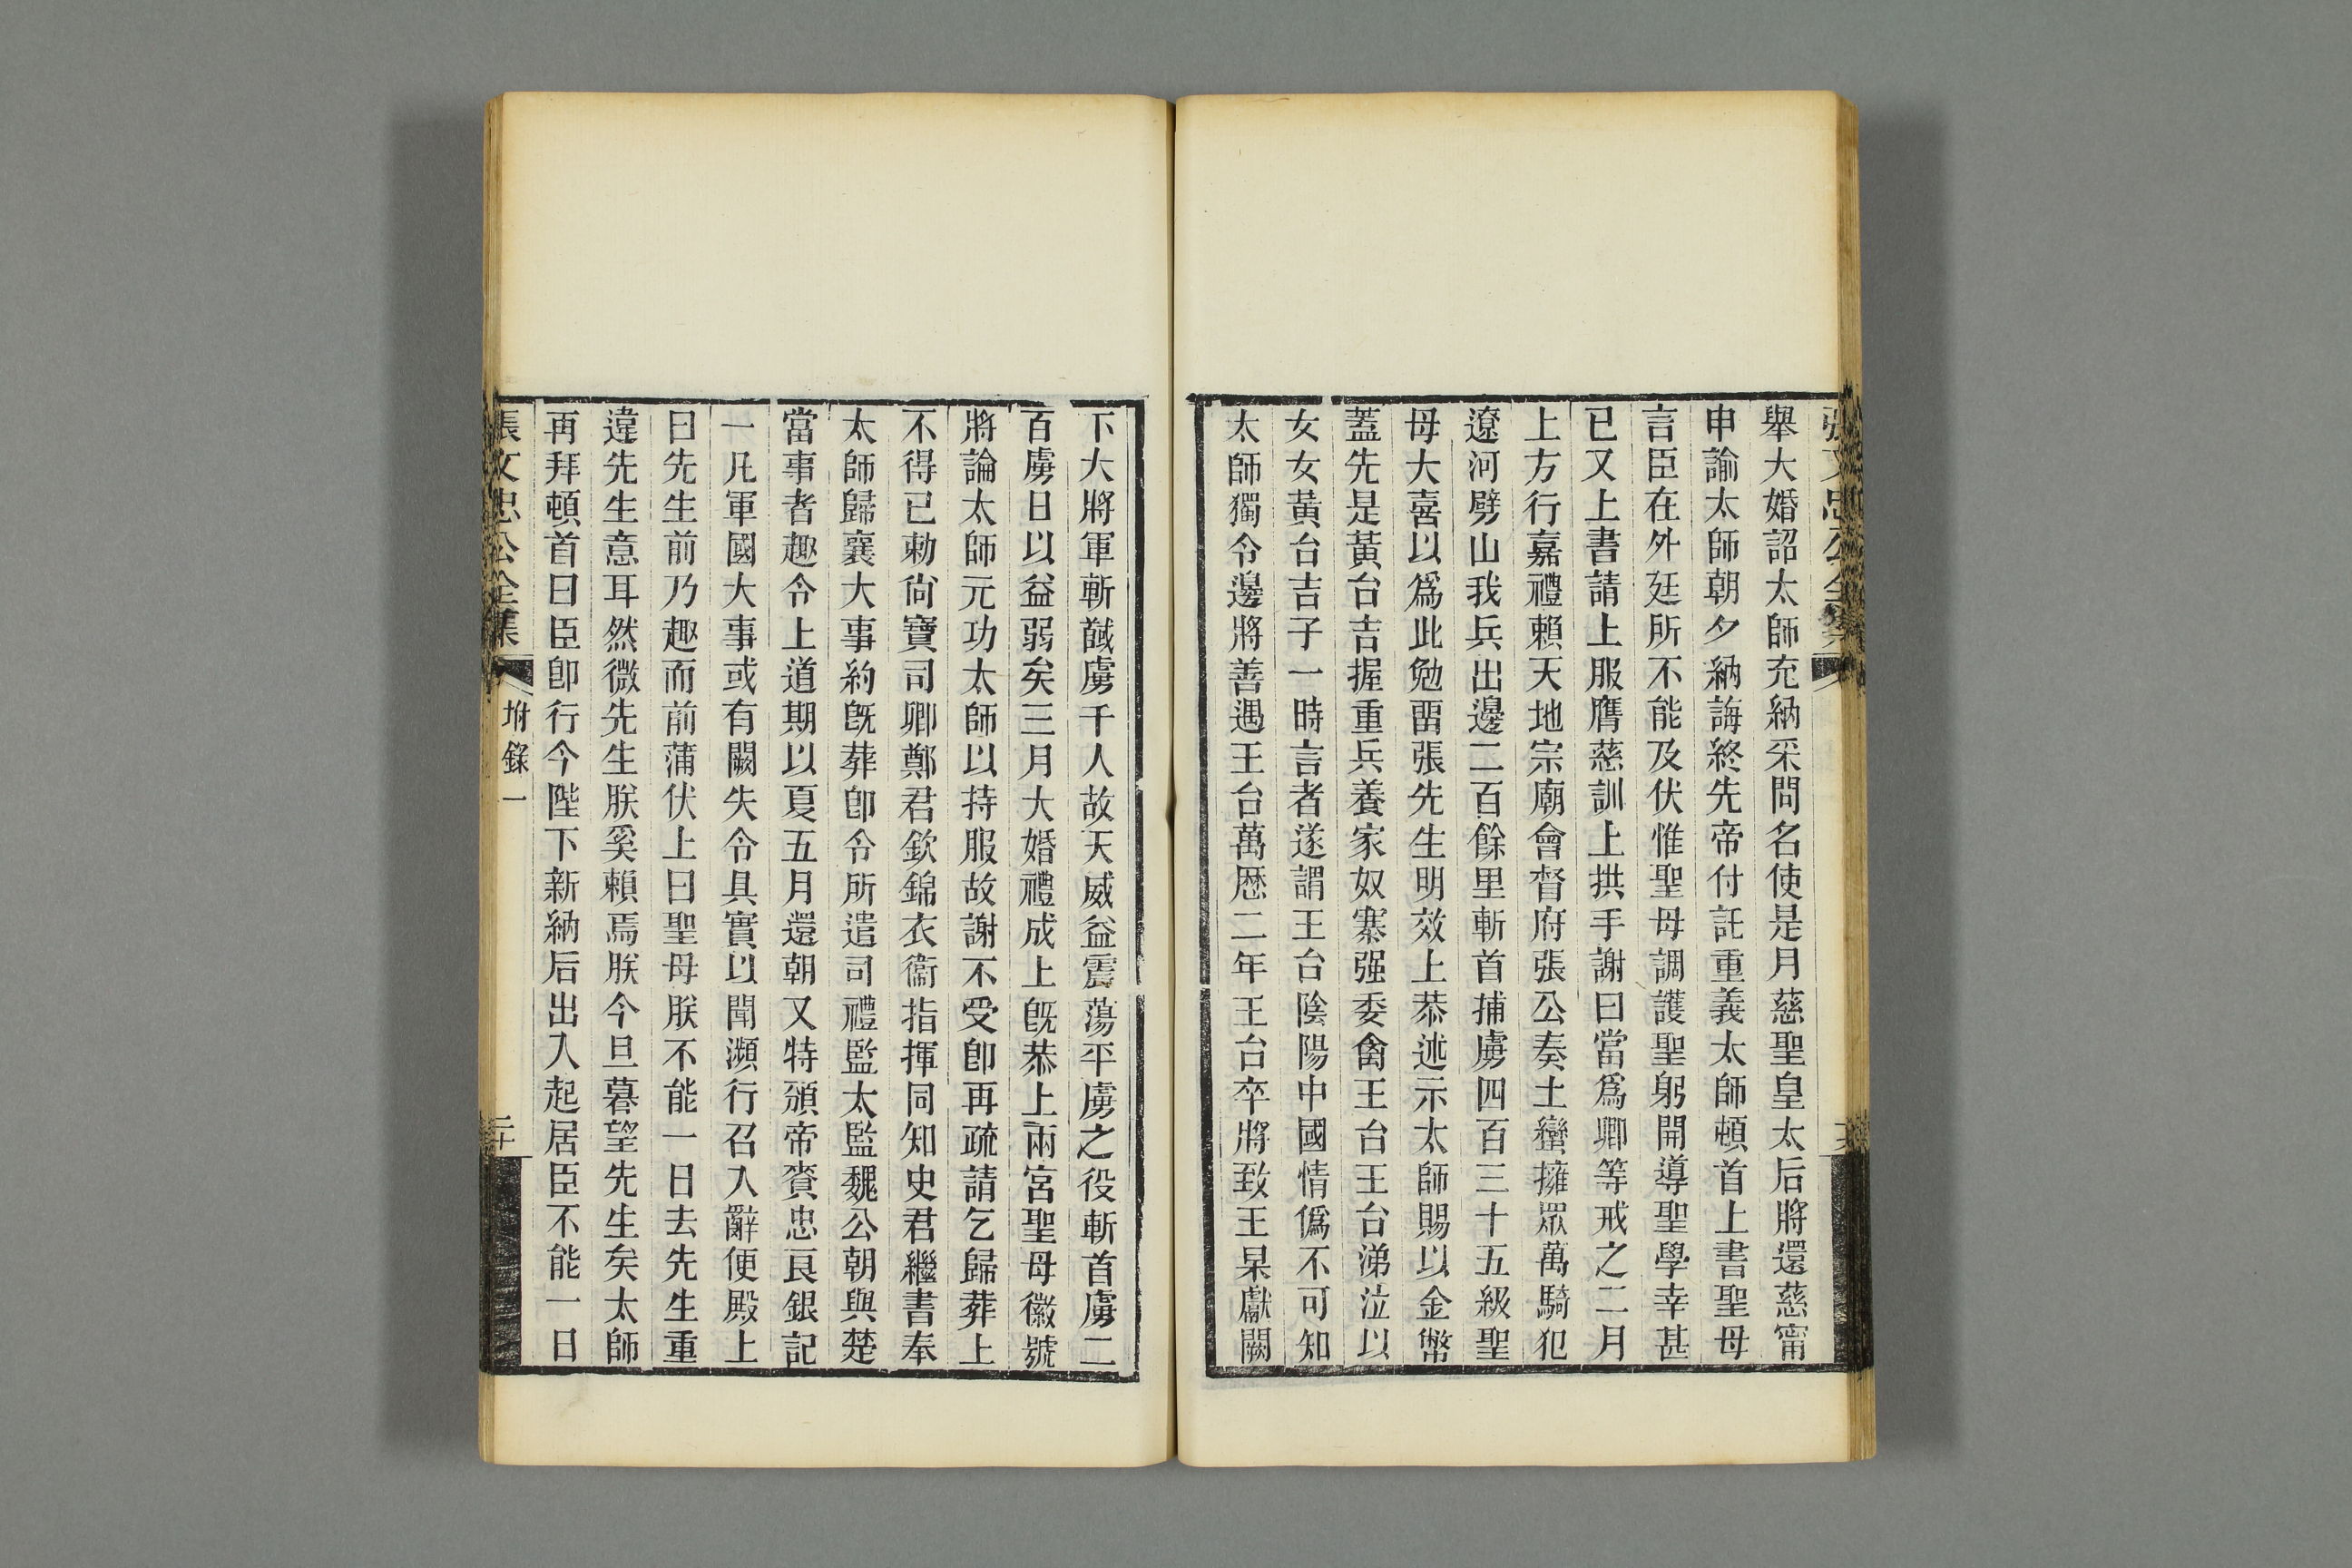 張文忠公全集
舉大婚詔太師充納采問名使是月慈聖皇太后將還慈甯
申諭太師朝夕納誨終先帝付託重義太師頓首上書聖母
言臣在外廷所不能及伏惟聖母調護聖躬開導聖學幸甚
已又上書請上服膺慈訓上拱手謝曰當爲卿等戒之二月
上方行嘉禮賴天地宗廟會督府張公奏土蠻擁眾萬騎犯
遼河劈山我兵出邊二百餘里斬首捕虜四百三十五級聖
母大喜以爲此勉畱張先生明效上恭述示太師賜以金幣
蓋先是黃台吉握重兵養家奴寨强委禽王台王台涕泣以
女女黃台吉子一時言者遂謂王台陰陽中國情僞不可知
太師獨令邊將善遇王台萬歴二年王台卒將致王杲獻闕
下大將軍斬馘虜千人故天威益震蕩平虜之役斬首虜二
百虜日以益弱矣三月大婚禮成上旣恭上兩宮聖母徽號
將論太師元功太師以持服故謝不受卽再疏請乞歸葬上
不得已勅尙寶司卿鄭君欽錦衣衞指揮同知史君繼書奉
太師歸襄大事約旣葬卽令所遣司禮監太監魏公朝與楚
當事者趣令上道期以夏五月還朝又特頒帝賚忠良銀記
一凡軍國大事或有闕失令具實以聞瀕行召入辭便殿上
曰先生前乃趣而前蒲伏上曰聖母朕不能一日去先生重
違先生意耳然微先生朕奚賴焉朕今旦暮望先生矣太師
再拜頓首曰臣卽行今陛下新納后出入起居臣不能一日
張文忠公全集
附錄一
二十